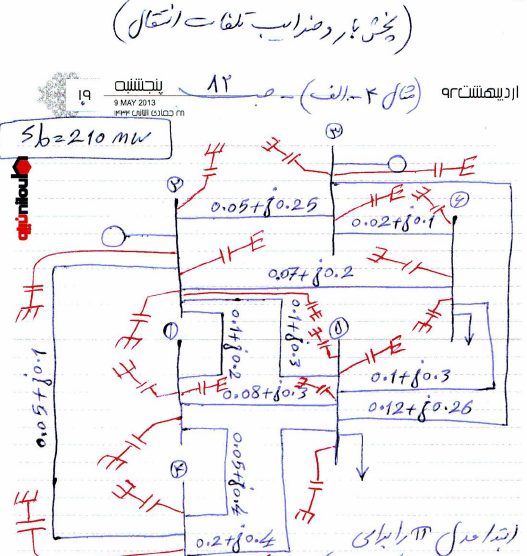 (پخش بار و ضرایب تلفات انتقال)
اردیبهشت ۹۲
(مثال ۴-الف) - صـ ۸۲
پنجشنبه
9 MAY 2013
۱۹
Sb=210 MW
0.05+j0.25
0.02+j0.1
0.07+j0.2
0.1+j0.2
0.1+j0.3
0.05+j0.1
0.08+j0.3
0.1+j0.3
0.12+j0.26
0.05+j0.4
0.2+j0.4
ابتدا مدل π را برای